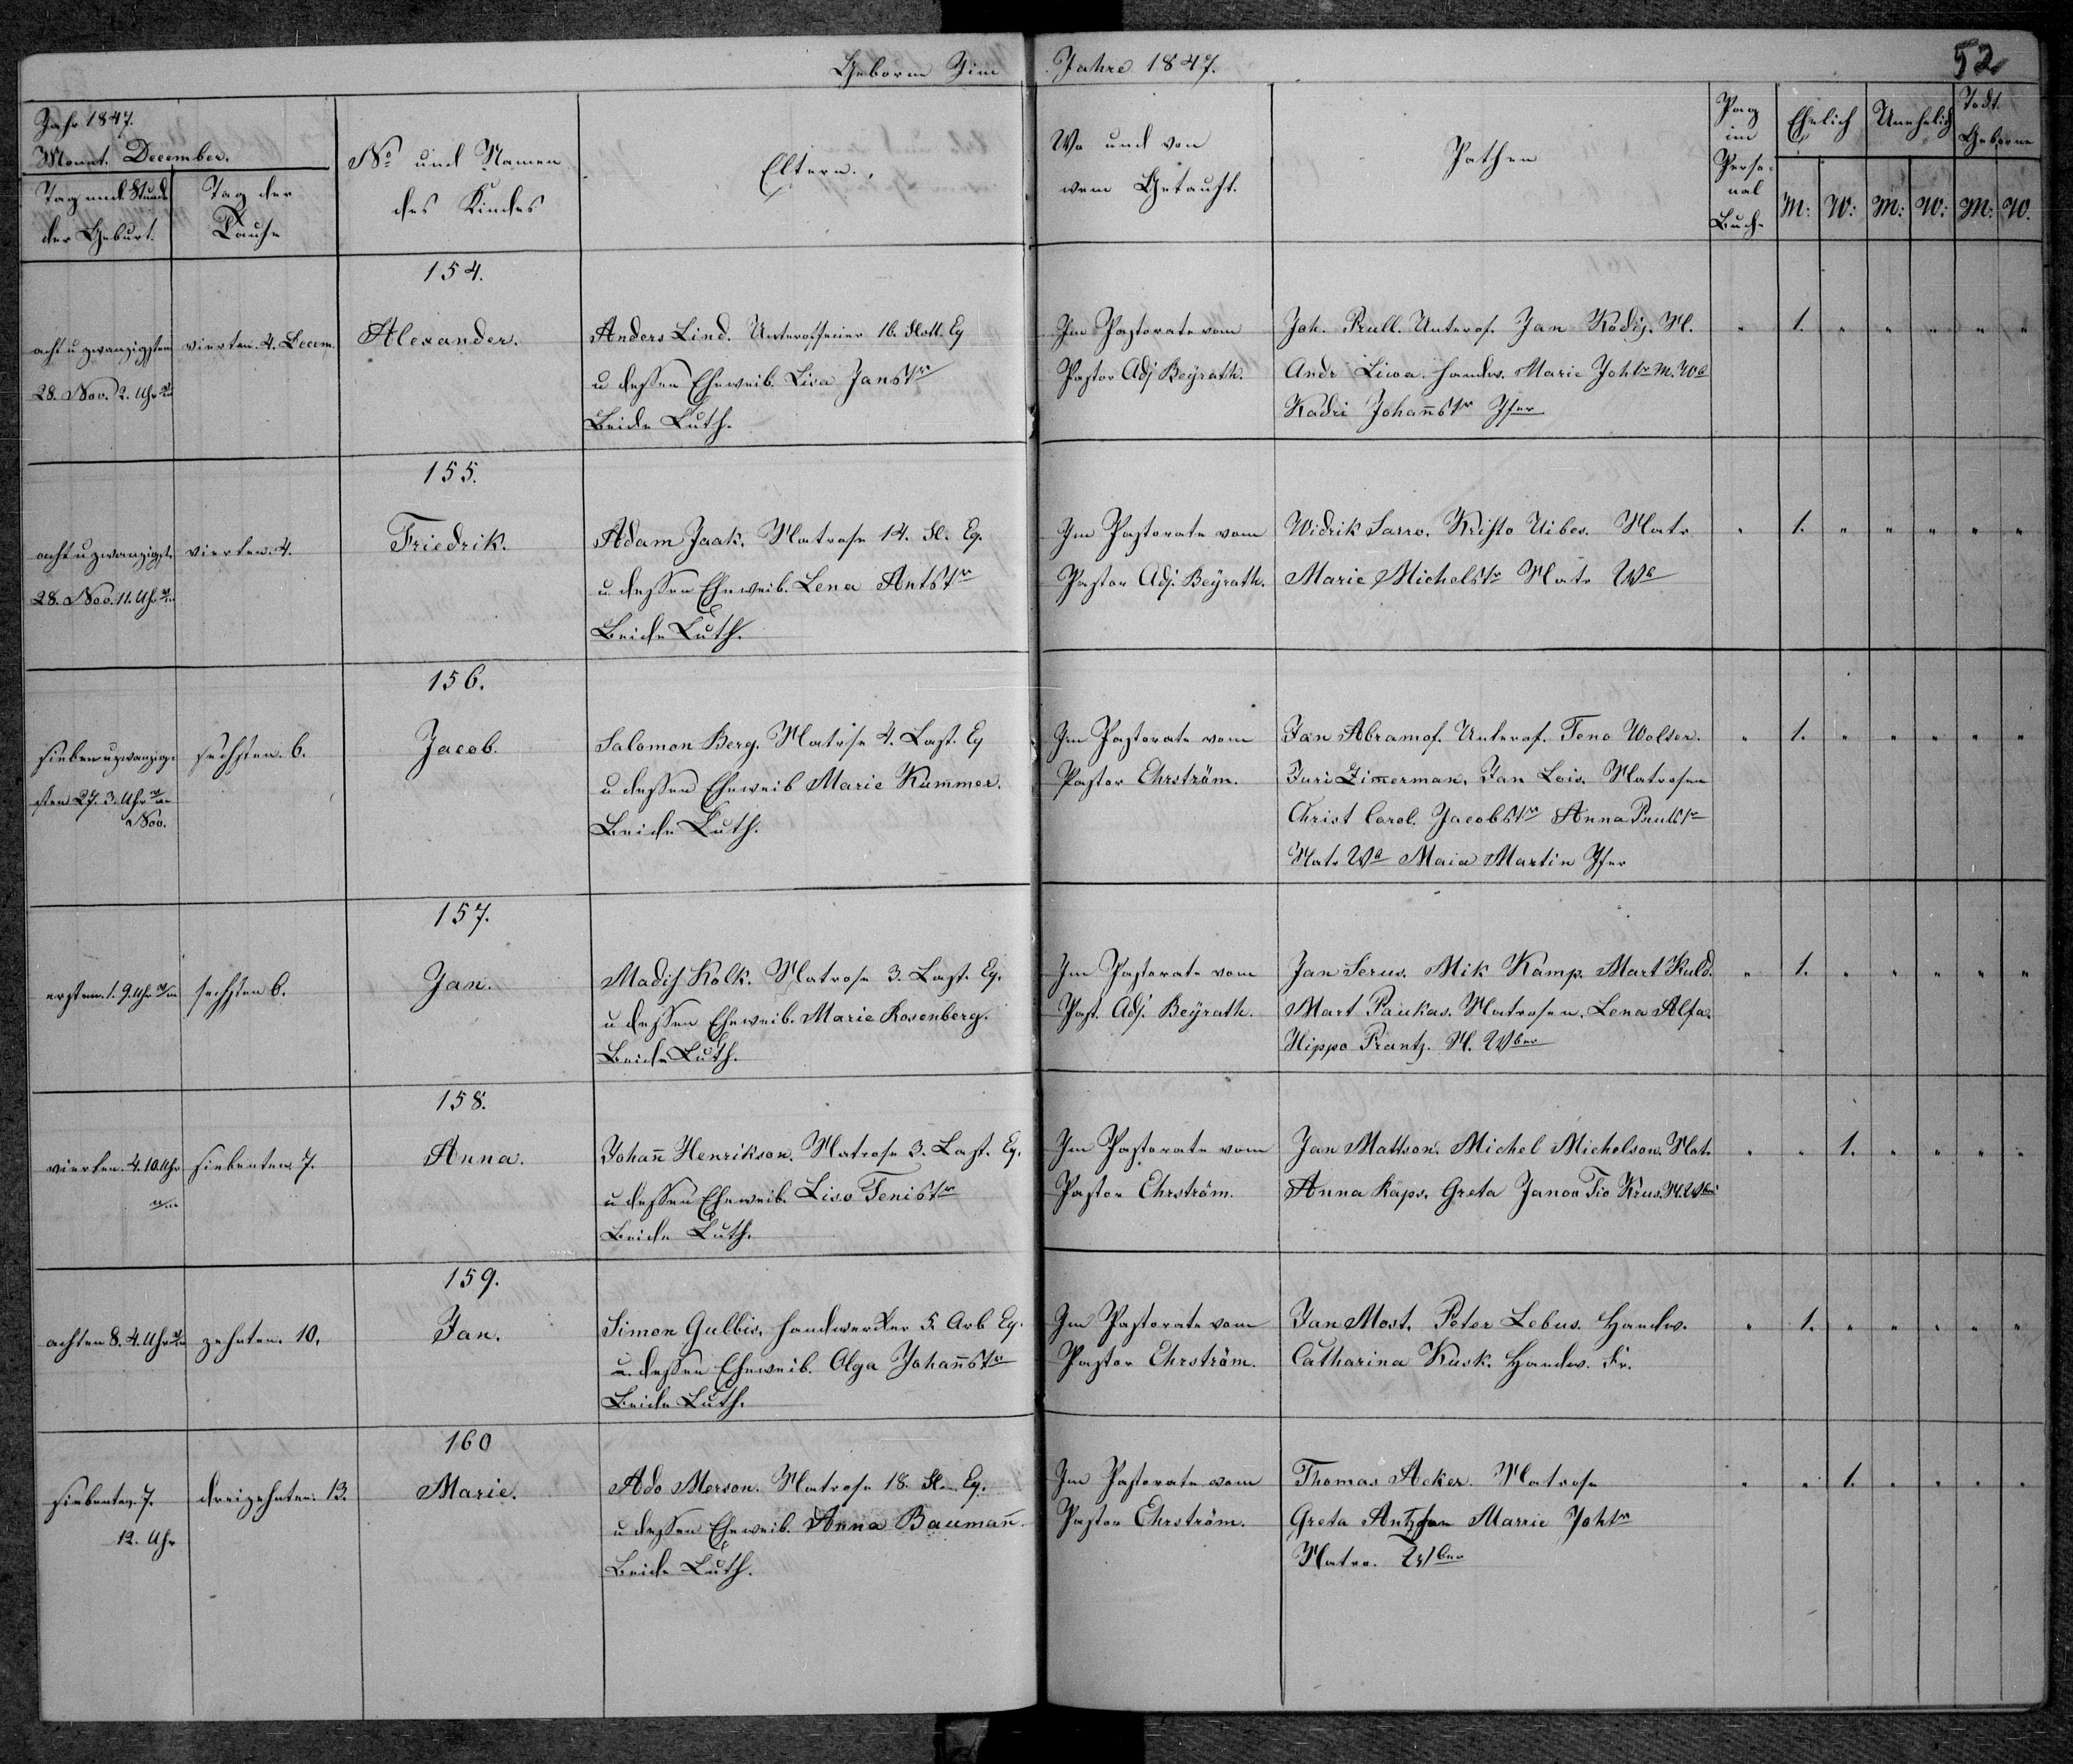 Geboren Im Jahre 1847.
52
Jahr 1847.
Monat. December.
Tag und Stunde der Geburt.
Tag der Taufe
No und Namen des Kindes
Eltern.
Wo und von wem Getauft.
Pathen
Pag im Personal Buch.
Ehelich
Unehelich
Todt Geborne
M: W: M: W: M: W.
154.
acht u zwanzigsten
28. Nov. 2. Uhr
vierten. 4. Decem.
Alexander.
Anders Lind. Unterofficier 16. Flott. Eq
u dessen Eheweib. Lisa Janstr
Beide Luth.
Im Pastorate vom
Pastor Adj Beÿrath.
Joh. Prull. Unterof. Jan Kodis. M.
Andr Liwa. Handw. Marie Johtr M. Wb
Kadri Johan̄str Jfer
" 1. " " " " "
155.
acht u zwanzigst.
28. Nov. 11. Uhr
vierten. 4.
Friedrik.
Adam Jaak. Matrose 14. Fl. Eq.
u. dessen Eheweib. Lena Antstr
Beide Luth.
Im Pastorate vom
Pastor Adj. Beÿrath.
Widrik Sarro. Kristo Uibes. Matr
Marie Michelstr Matr Wb
" 1. " " " " "
156.
sieben u zwanzig-
sten 27. 3. Uhr
Nov.
sechsten. 6.
Jacob.
Salomon Berg. Matrose 4. Last. Eq
u dessen Eheweib Marie Kummer.
Beide Luth.
Im Pastorate vom
Pastor Ehrström.
Jan Abramof. Unterof. Teno Wolser.
Juri Zim̄erman, Jan Lois. Matrosen
Christ Carol. Jacobstr Anna
Matr Wb Maia Martin Jfer
" 1. " " " " "
157.
ersten. 1. 9. Uhr
sechsten 6.
Jan.
Madis Kolk. Matrose 3. Last. Eq.
u dessen Eheweib. Marie Rosenberg.
Beide Luth.
Im Pastorate vom
Past. Adj. Beÿrath.
Jan Serus. Mik Kamp. Mart Kuld.
Mart Paukas. Matrosen. Lena Alfa.
Hippo Prantz. M. Wber
" 1. " " " " "
158.
vierten. 4. 10. Uhr
siebenten 7.
Anna.
Johan̄ Henrikson. Matrose 3. Last. Eq.
u dessen Eheweib. Liso Tenistr
Beide Luth.
Im Pastorate vom
Pastor Ehrström.
Jan Mattson. Michel Michelson. Mat.
Anna Raps. Greta Janon Tio Krus. M. Wber
" " 1. " " " "
159.
achten 8. 4. Uhr
zehnten. 10.
Jan.
Simon Gulbis, Handwerker 5. Arb Eq.
u. dessen Eheweib. Olga Johan̄str
Beide Luth.
Im Pastorate vom
Pastor Ehrström.
Jan Most. Peter Lebus. Handw.
Catharina Kusk. Handw. Fr.
" 1. " " " " "
160
siebenten. 7.
12. Uhr
dreizehnten. 13.
Marie.
Ado Merson. Matrose 18. Fl. Eq.
u dessen Eheweib. Anna Bauman̄.
Beide Luth.
Im Pastorate vom
Pastor Ehrström.
Thomas Acker. Matrose
Greta Marrie Johtr
Matro. Wber
" " 1. " " " "